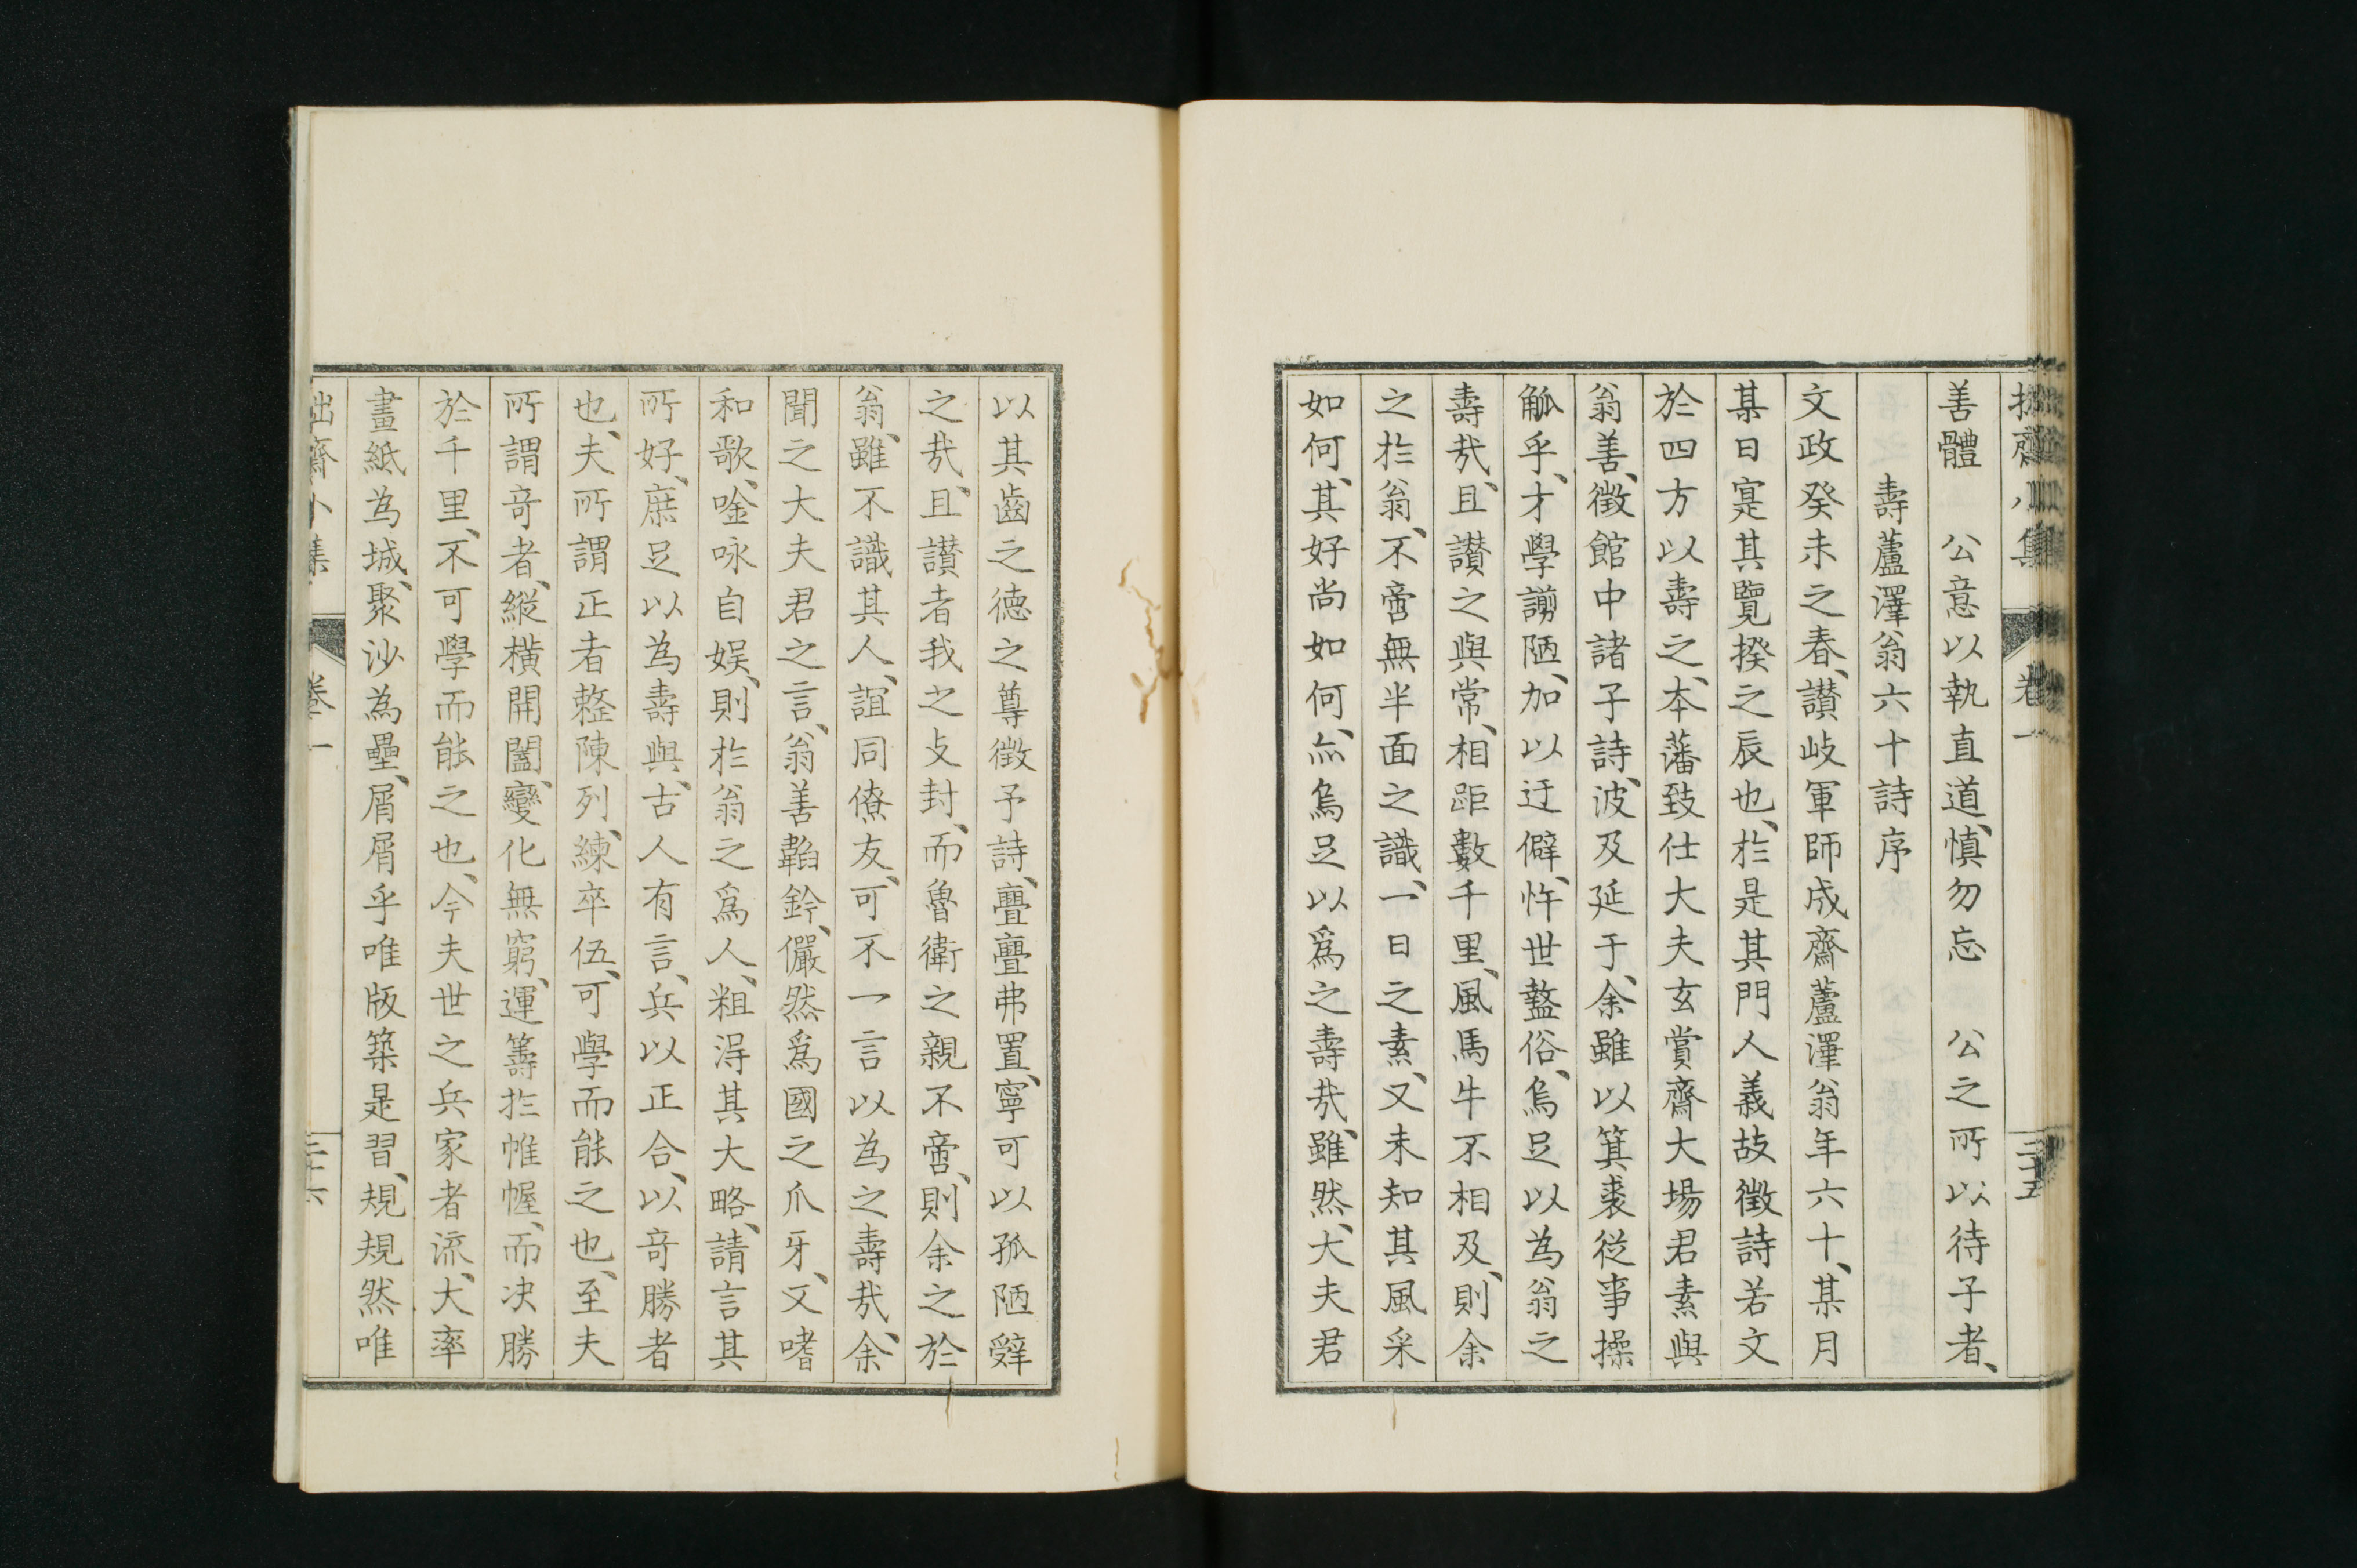 拙齋小集 卷一 三十五
善體 公意以執直道、慎勿忘 公之所以待子者、
壽蘆澤翁六十詩序
文政癸未之春、讃岐軍師成齋蘆澤翁年六十、某月
某日寔其覽揆之辰也、於是其門人義故徵詩若文
於四方以壽之、本藩致仕大夫玄賞齋大場君素與
翁善、徵館中諸子詩、波及延于、余雖以箕裘從事操
觚乎、才學謭陋、加以迂僻、忤世盭俗、烏足以為翁之
壽哉、且讃之與常、相距數千里、風馬牛不相及、則余
之於翁、不啻無半面之識、一日之素、又未知其風采
如何、其好尚如何、烝烏足以爲之壽哉、雖然、大夫君
以其齒之德之尊徵予詩、亹亹弗置、寧可以孤陋辭
之哉、且讃者我之攴封、而魯衛之親不啻、則余之於
翁、雖不識其人、誼同僚友、可不一言以為之壽哉、余
聞之大夫君之言、翁善韜鈐、儼然爲國之爪牙、又嗜
和歌、唫咏自娱、則於翁之爲人、粗淂其大略、請言其
所好、庶足以為壽與、古人有言、兵以正合、以奇勝者
也、夫所謂正者整陳列、練卒伍、可學而能之也、至夫
所謂奇者、縱橫開闔、變化無窮、運籌於帷幄、而决勝
於千里、不可學而能之也、今夫世之兵家者流、大率
畫紙為城、聚沙為壘、屑屑乎唯版築是習、規規然唯
拙齋小集 卷一 三十六